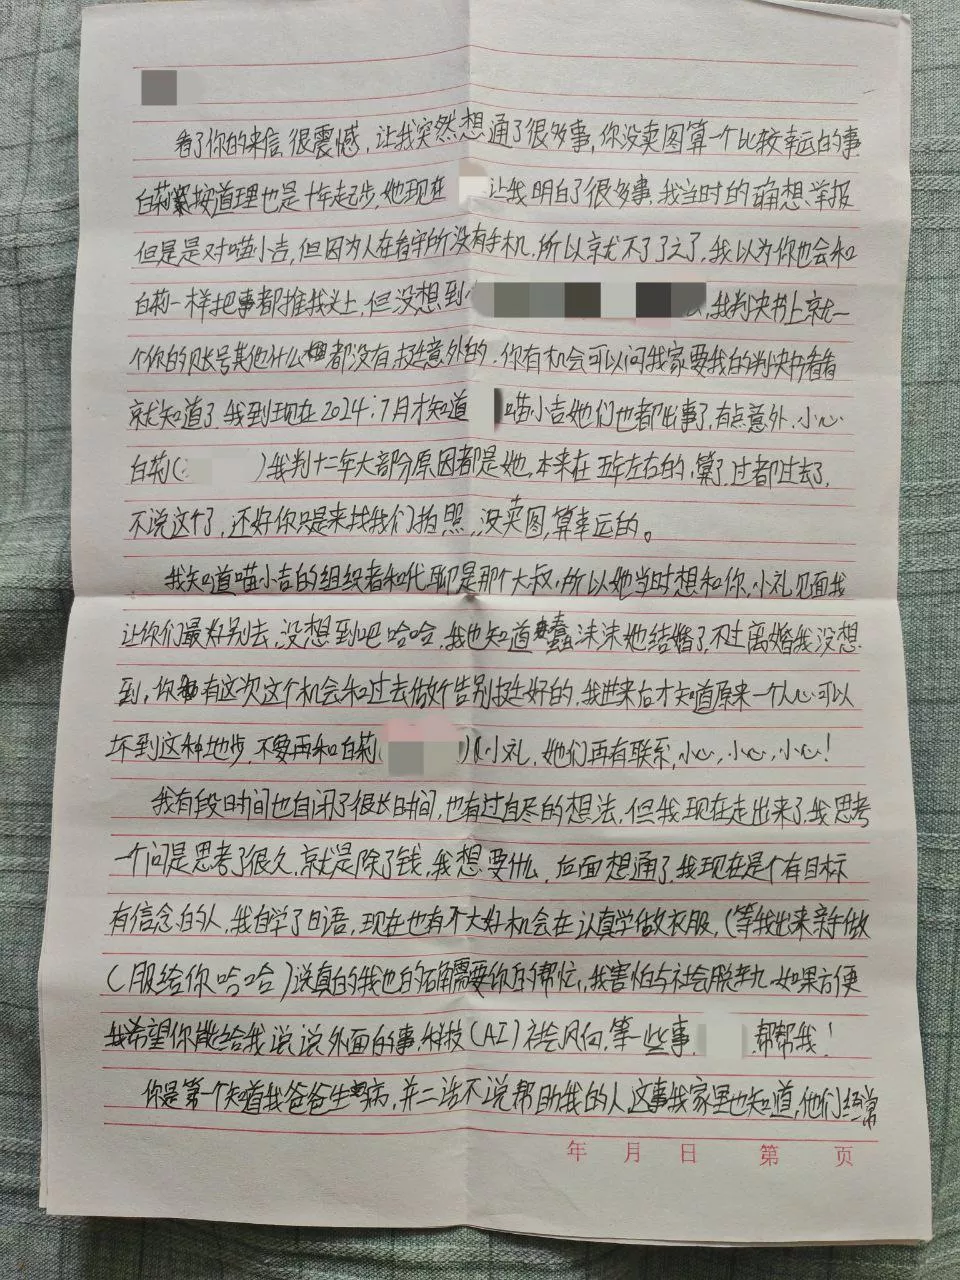 看了你的来信,很震憾,让我突然想通了很多事,你没卖图算一个比较幸运的事
白莉按道理也是十年起步,她现在 让我明白了很多事,我当时的确想举报
但是是对喵小吉,但因为人在看守所没有手机,所以就不了了之了,我以为你也会和
白莉一样把事都推我头上,但没想到 ,我判决书上就一
个你的账号其他什么都没有,挺意外的,你有机会可以问我家要我的判决书看看
就知道了,我到现在2024.7月才知道 喵小吉她们也都出事了,有点意外,小心
白莉( )我判十二年大部分原因都是她,本来在五年左右的,算了,过都过去了,
不说这个了,还好你只是来找我们拍照,没卖图,算幸运的。
我知道喵小吉的组织者和代聊是那个大叔,所以她当时想和你,小礼见面我
让你们最好别去,没想到吧哈哈,我也知道蠢沫沫她结婚了,不过离婚我没想
到,你有这次这个机会和过去做个告别挺好的,我进来后才知道原来一个人心可以
坏到这种地步,不要再和白莉( )小礼,她们再有联系,小心,小心,小心!
我有段时间也自闭了很长时间,也有过自尽的想法,但我现在走出来了,我思考
一个问是思考了很久,就是除了钱,我想要什么,后面想通了,我现在是个有目标
有信念的人,我自学了日语,现在也有不大好机会在认真学做衣服,(等我出来亲手做
(服给你哈哈)说真的我也的确需要你的帮忙,我害怕与社会脱轨,如果方便
我希望你能给我说说外面的事,科技(AI)社会风向,等一些事, ,帮帮我!
你是第一个知道我爸爸生病,并二话不说帮助我的人,这事我家里也知道,他们经常
年 月 日 第 页